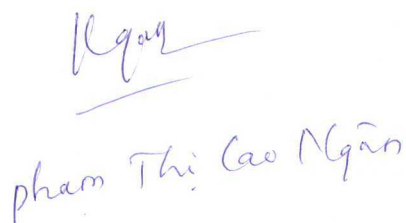 Ngân
phạm Thị Cao Ngân